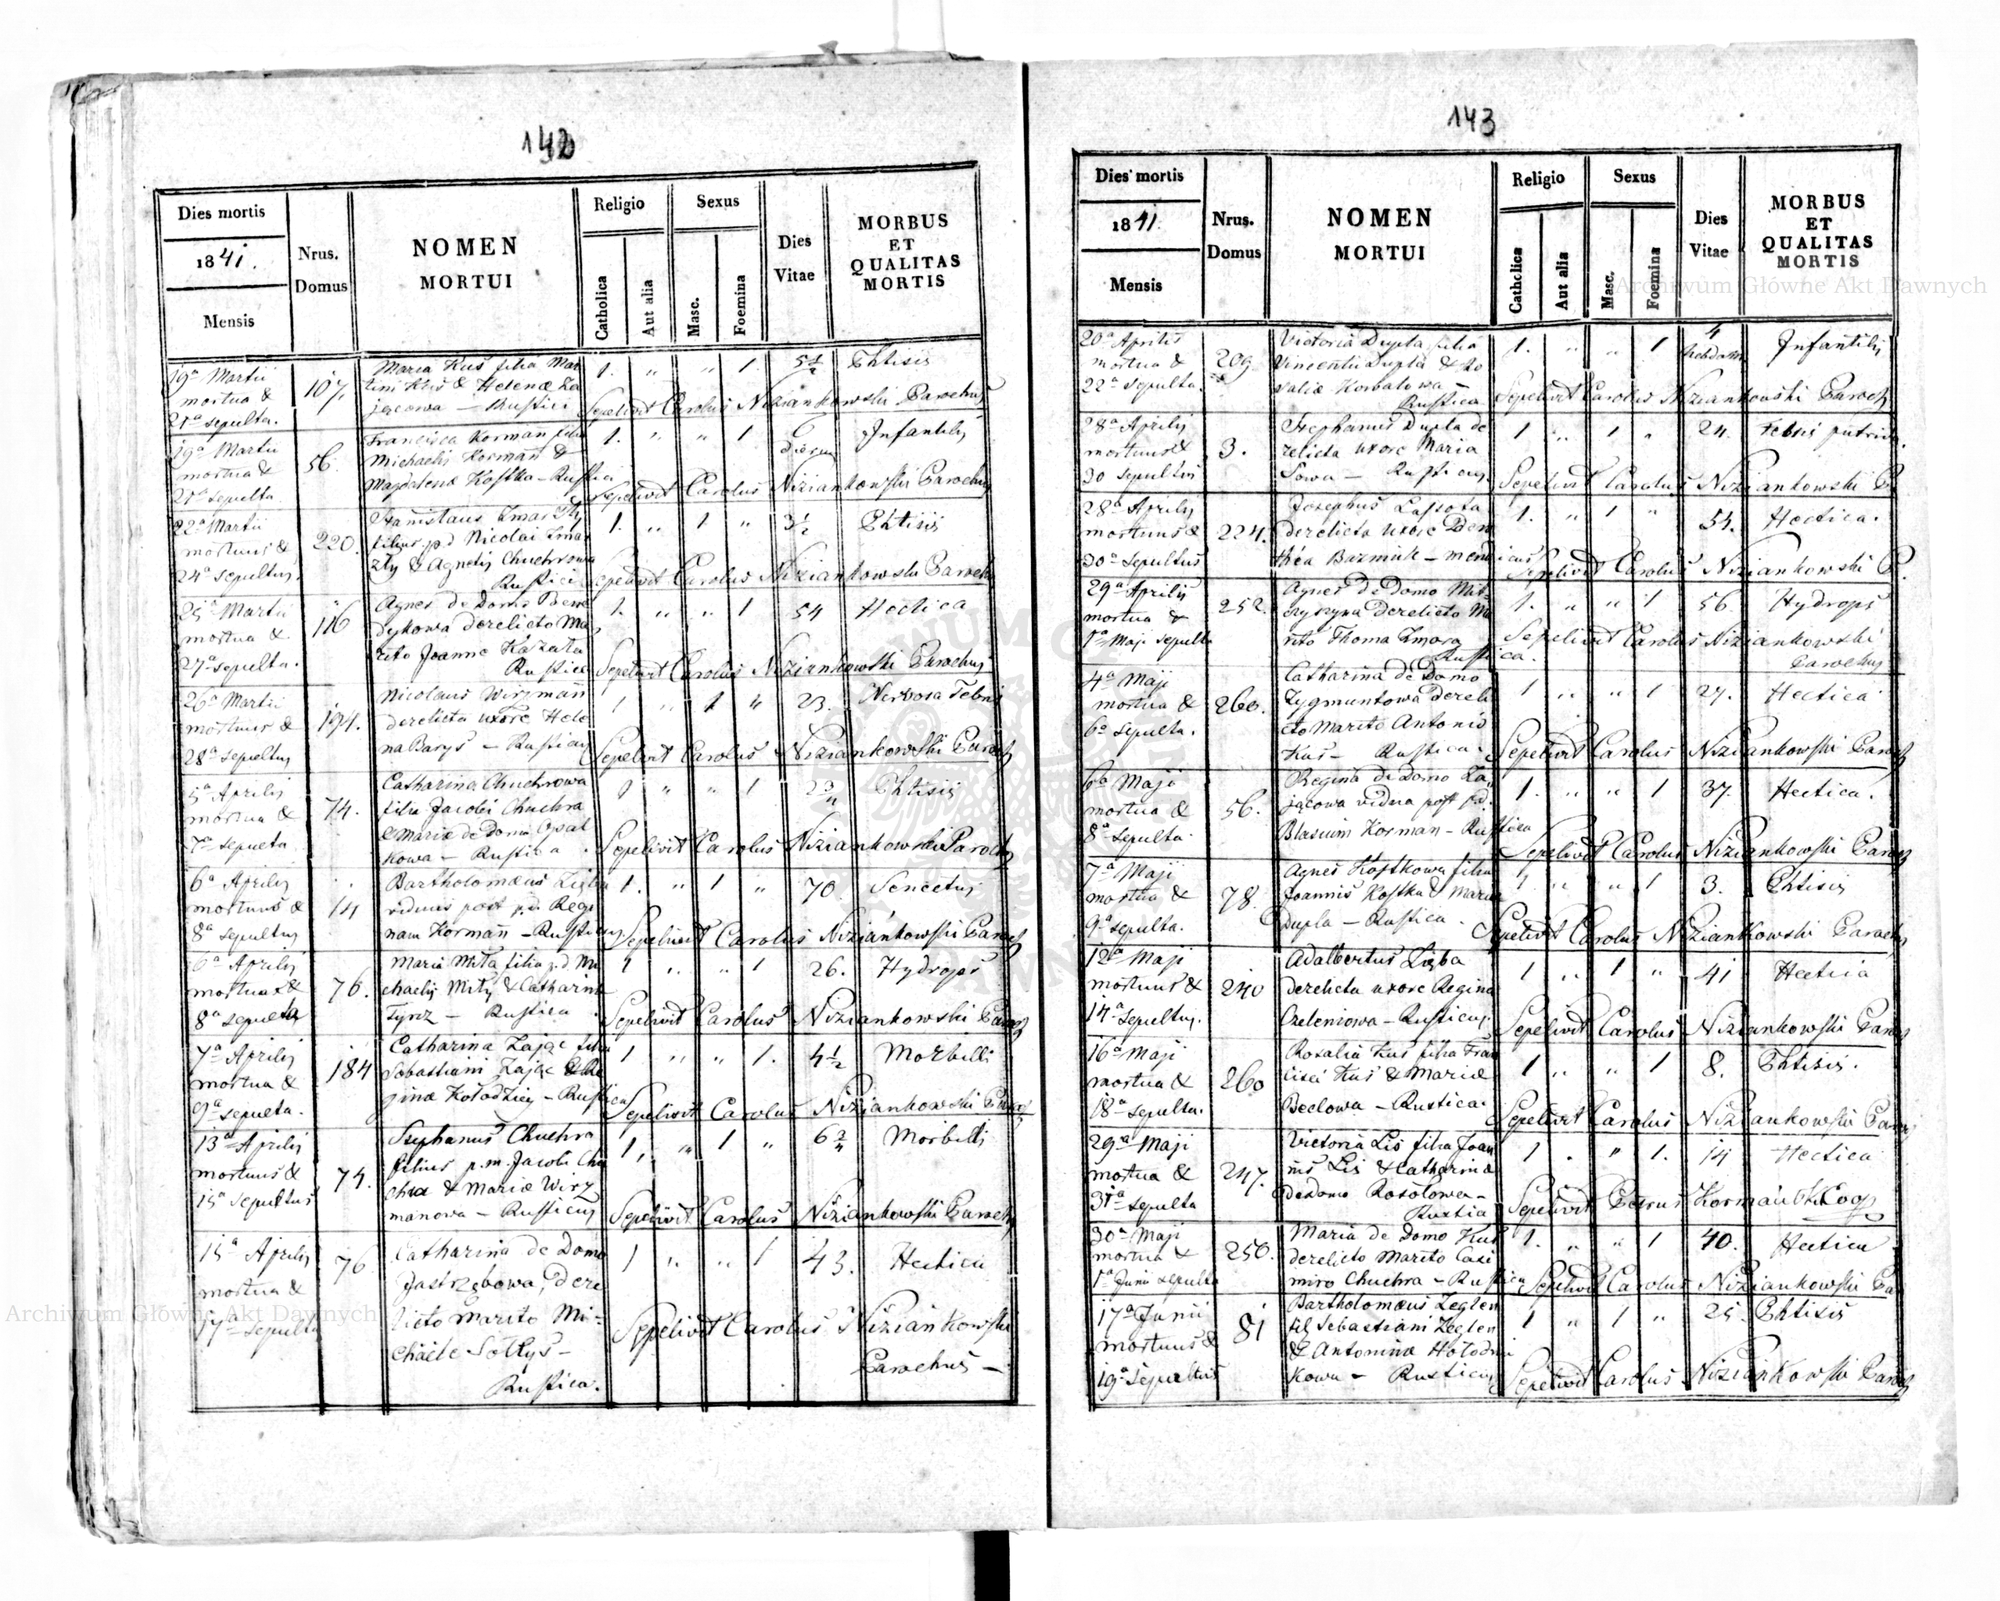 142
Dies mortis
1841.
Mensis
Nrus.
Domus
NOMEN
MORTUI
Religio
Catholica
Aut alia
Sexus
Masc.
Foemina
Dies
Vitae
MORBUS
ET
QUALITAS
MORTIS
19a Martii
mortua &
21a sepulta.
107.
Maria Kuś filia Mar
tini Kuś & Helenæ Za
jącowa — Rustici
1. " " 1. 5 1/2 Phtisis
Sepelivit Carolus Niziankowski Parochus
19a Martii
mortua &
21a sepulta
56.
Francisca Korman filia
Michaelis Korman &
Magdalenæ Kostka — Rustica
1. " " 1 6
dierum
Infantilis
Sepelivit Carolus Niziankowski Parochus
22a Martii
mortuus &
24a sepultus.
220.
Stanislaus
filius p.d Nicolai
& Agnetis Chuchrowa
Rustici
1. " 1 " 3 1/2 Phtisis
Sepelivit Carolus Niziankowski Paroch
25a Martii
mortua &
27a sepulta.
116
Agnes de Domo Bene
dykowa derelicto Ma
rito Joanne
Rustica
1. " " 1 54 Hectica
Sepelivit Carolus Niziankowski Parochus
26a Martii
mortuus &
28a sepultus
194.
Nicolaus Wirzman
derelicta uxore Hele
na Barys — Rusticus
1 " 1 " 23. Nervosa Febris
Sepelivit Carolus Niziankowski Paroch
5a Aprilis
mortua &
7a sepulta
74.
Catharina Chuchrowa
filia Jacobi Chuchra
& Mariæ de Domo
kowa — Rustica
1 " " 1 Phtisis
Sepelivit Carolus Niziankowski Paroch
6a Aprilis
mortuus &
8a sepultus
14
Bartholomæus Zięba
viduus post p.d. Regi
nam Korman — Rusticus
1. " 1 " 70. Senectus
Sepelivit Carolus Niziankowski Paroch
6a Aprilis
mortua &
8a sepulta
76.
Maria Miła filia p.d Mi
chaelis Miły & Catharinæ
Tyrcz — Rustica
1 " " 1 26. Hydrops
Sepelivit Carolus Niziankowski Paroch
7a Aprilis
mortua &
9a sepulta.
184
Catharina Zając filia
Sebastiani Zając & Re
ginæ Kołodziey — Rustica
1 " " 1. 4 1/2 Morbilli
Sepelivit Carolus Niziankowski Paroch
13a Aprilis
mortuus &
15a sepultus
74.
Stephanus Chuchra
filius p.m. Jacobi Chu
chra & Mariæ Wirz
manowa — Rusticus
1. " 1 " Morbilli
Sepelivit Carolus Niziankowski Paroch
15a Aprilis
mortua &
17a sepulta
76.
Catharina de Domo
Jastrzębowa, Dere
licto Marito Mi-
chaele Sołtys —
Rustica.
1 " " 1 43. Hectica
Sepelivit Carolus Niziankowski
Parochus —
143
Dies mortis
1841.
Mensis
Nrus.
Domus
NOMEN
MORTUI
Religio
Catholica
Aut alia
Sexus
Masc.
Foemina
Dies
Vitae
MORBUS
ET
QUALITAS
MORTIS
20a Aprilis
mortua &
22a sepulta.
209.
Victoria Dupla filia
Vincentii Dupla & Ro
saliæ Korbalowa —
Rustica
1. " " 1 4
hebdom
Infantilis
Sepelivit Carolus Niziankowski Paroch
28a Aprilis
mortuus &
30 sepultus
3.
Stephanus Dupla de
relicta uxore Maria
Sowa — Rusticus
1 " 1 " 24. Febris putrida.
Sepelivit Carolus Niziankowski P.
28a Aprilis
mortuus &
30a sepultus
224.
Josephus Lassota
derelicta uxore Doro
thea Bazniuk — mendicus
1. " 1 " 54. Hectica.
Sepelivit Carolus Niziankowski P.
29a Aprilis
mortua &
1a Maji sepulta
252.
Agnes de Domo
derelicto Ma
rito Thoma
Rustica.
1. " " 1 56. Hydrops
Sepelivit Carolus Niziankowski
Parochus
4a Maji
mortua &
6a sepulta.
260.
Catharina de Domo
Zygmuntowa dereli
cto Marito Antonio
Kuś — Rustica.
1 " " 1 27. Hectica
Sepelivit Carolus Niziankowski Paroch
6a Maji
mortua &
8a sepulta.
56.
Regina de Domo Za
jącowa vidua post p.d.
Blasium Korman — Rustica
1. " " 1 37. Hectica.
Sepelivit Carolus Niziankowski Paroch
7a Maji
mortua &
9a sepulta.
78.
Agnes Kostkowa filia
Joannis Kostka & Mariæ
Dupla — Rustica.
1 " " 1 3. Phtisis
Sepelivit Carolus Niziankowski Paroch
12a Maji
mortuus &
14a sepultus.
240
Adalbertus Zięba
derelicta uxore Regina
Czeleniowa — Rusticus.
1 " 1 " 41 Hectica
Sepelivit Carolus Niziankowski Paroch
16a Maji
mortua &
18a sepulta.
260
Rosalia Kuś filia Fran
cisci Kuś & Mariæ
Beclowa — Rustica.
1 " " 1 8. Phtisis.
Sepelivit Carolus Niziankowski Paroch
29a Maji
mortua &
31a sepulta
247.
Victoria Lis filia Joan
nis Lis & Catharinæ
de domo Rosołowa —
Rustica
1 " " 1. 14 Hectica
Sepelivit Petrus Korman
30a Maji
mortua &
1a Junii sepulta
250.
Maria de Domo Kuś
derelicto Marito Casi
miro Chuchra — Rustica
1. " " 1 40. Hectica
Sepelivit Carolus Niziankowski Pa
17a Junii
mortuus &
19a sepultus
81
Bartholomæus Zeglen
fil. Sebastiani Zeglen
& Antoninæ Hołodni
kowa — Rusticus
1 " 1 " 25. Phtisis
Sepelivit Carolus Niziankowski Paroch
Archiwum Główne Akt Dawnych
Archiwum Główne Akt Dawnych